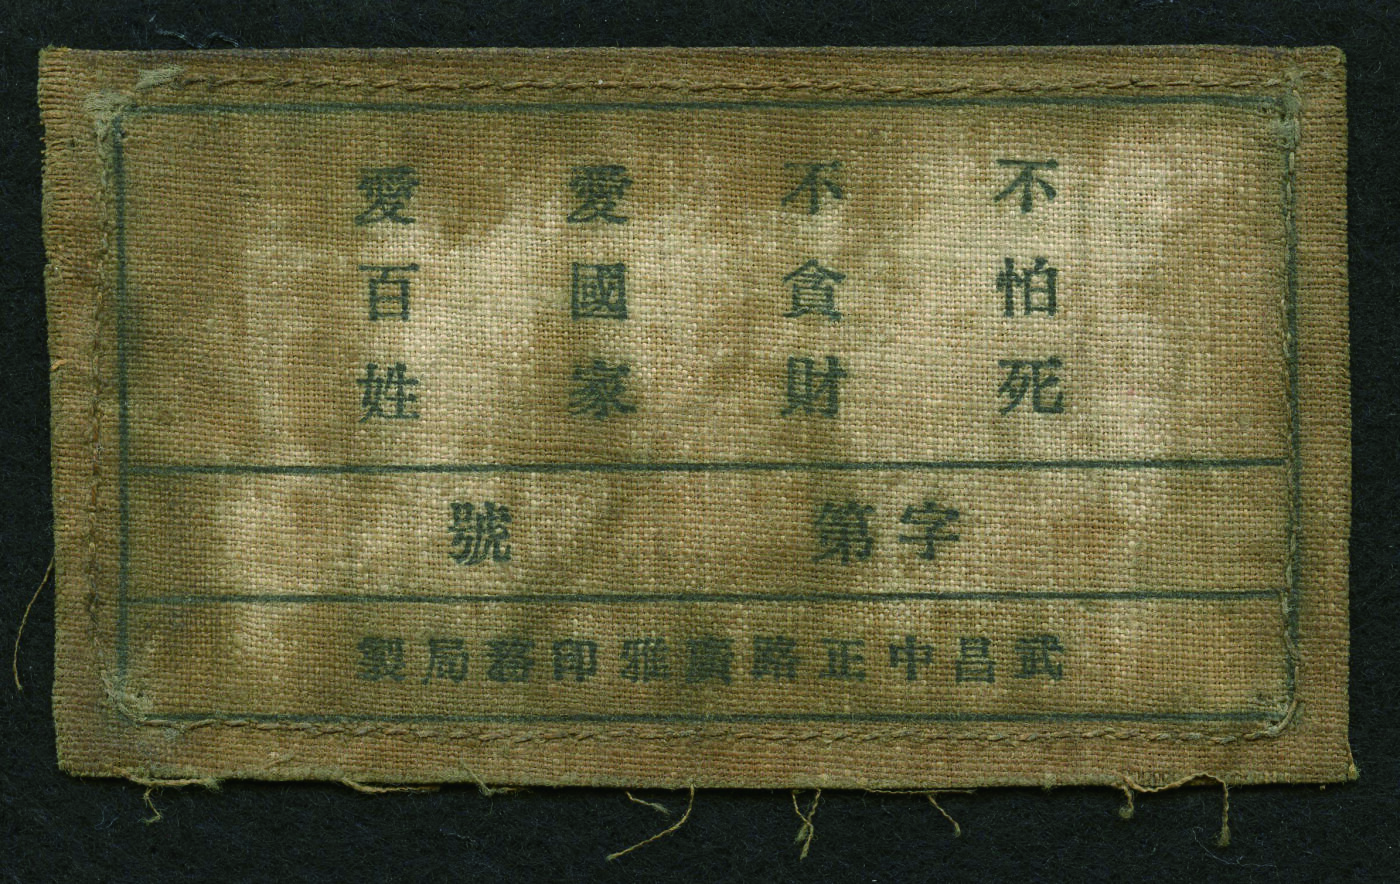 不怕死
不貪財
愛國家
愛百姓
字第號
武昌中正路廣雅印書局製